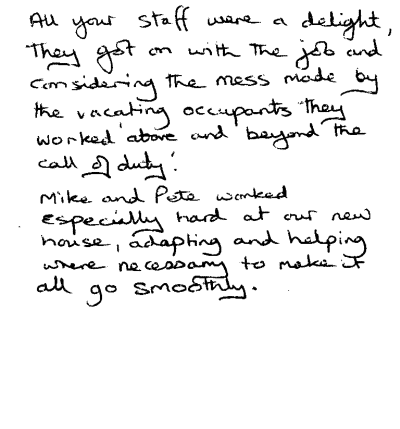 All your staff were a delight,
They got on with the job and
considering the mess made by
the vacating occupants they
worked 'above and beyond the
call of duty'.
Mike and Pete worked
especially hard at our new
house, adapting and helping
where necessary to make it
all go smoothly.